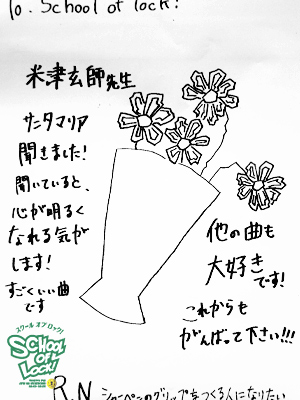 To. School of lock!
米津玄師先生
サンタマリア
聞きました!
聞いていると、
心が明るく
なれる気が
します!
すごくいい曲
です
他の曲も
大好き
です!
これからも
がんばって下さい!!!
スクール オブ ロック!
SCHOOL
OF
LOCK!
R.N シャーペンのグリップをつくる人になりたい